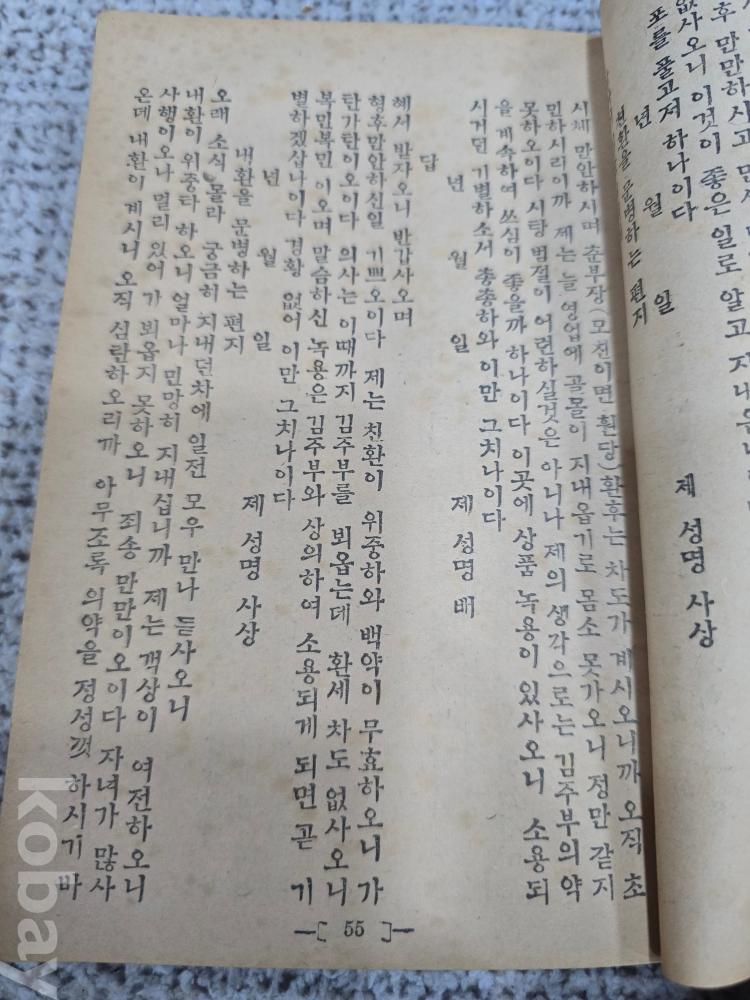 포를 풀고저 하나이다
년 월 일
제 성명 사상
친환을 문병하는 편지
시체 만안하시며 춘부장(모친이면 훤당)환후는 차도가 계시오니까 오직 초
민하시리이까 제는 늘 영업에 골몰이 지내옵기로 몸소 못가오니 정만 같지
못하오이다 시탕 범절이 어련하실것은 아니나 제의 생각으로는 김주부의 약
을 계속하여 쓰심이 좋을까 하나이다 이곳에 상품 녹용이 있사오니 소용되
시거던 기별하소서 총총하와 이만 그치나이다
년 월 일
제 성명 배
답
혜서 받자오니 반갑사오며
형후만안하신일 기쁘오이다 제는 친환이 위중하와 백약이 무효하오니 가
탄가탄이오이다 의사는 이때까지 김주부를 뵈옵는데 환세 차도 없사오니
복민복민이오며 말씀하신 녹용은 김주부와 상의하여 소용되게 되면 곧 기
별하겠삽나이다 경황 없어 이만 그치나이다
년 월 일
제 성명 사상
내환을 문병하는 편지
오래 소식 몰라 궁금히 지내던차에 일전 모우 만나 듣사오니
내환이 위중타 하오니 얼마나 민망히 지내십니까 제는 객상이 여전하오니
사행이오나 멀리 있어 가 뵈옵지 못하오니 죄송 만만이오이다 자녀가 많사
온데 내환이 계시니 오직 심탄하오리까 아무조록 의약을 정성껏 하시기바
—[ 55 ]—
kobay